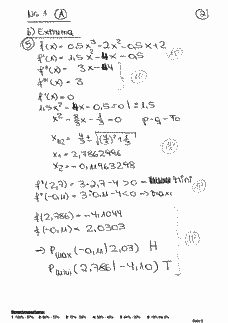 No 1 (A) (2)
b) Extrema
f(x) = 0,5x³ - 2x² - 0,5x + 2
f'(x) = 1,5x² - 4x - 0,5
f''(x) = 3x - 4
f'''(x) = 3
f'(x) = 0
1,5x² - 4x - 0,5 = 0 | : 1,5
x² - 8/3 x - 1/3 = 0 p-q-Fo
x₁/₂ = 4/3 ± √((4/3)² + 1/3)
x₁ = 2,7862996
x₂ = -0,11963298
f''(2,7) = 3·2,7 - 4 > 0 → Mini
f''(-0,11) = 3·0,11 - 4 < 0 → Max
f(2,786) = -4,1044
f(-0,11) = 2,0303
→ Pmax (-0,11 | 2,03) H
Pmin (2,786 | -4,10) T